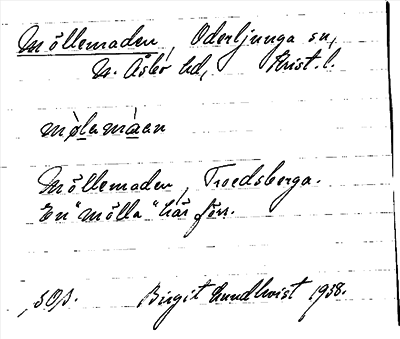 Möllemaden, Oderljunga sn,
N. Åsbo hd, Krist. l.
mø̀lemàen
Möllemaden, Troedsberga.
En "mölla" här förr.
SOS. Birgit Lundkvist 1938.